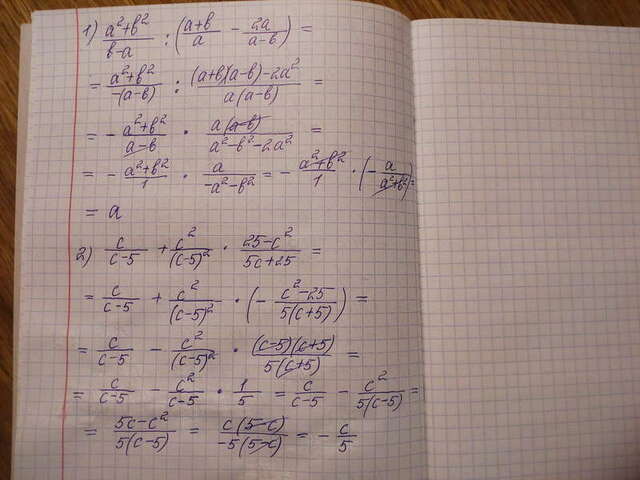 1) (a²+b²)/(b-a) : ((a+b)/a - 2a/(a-b)) =
= (a²+b²)/(-(a-b)) : ((a+b)(a-b)-2a²)/(a(a-b)) =
= - (a²+b²)/(a-b) · (a(a-b))/(a²-b²-2a²) =
= - (a²+b²)/1 · a/(-a²-b²) = - (a²+b²)/1 · (- a/(a²+b²)) =
= a
2) c/(c-5) + c²/(c-5)² · (25-c²)/(5c+25) =
= c/(c-5) + c²/(c-5)² · (- (c²-25)/(5(c+5))) =
= c/(c-5) - c²/(c-5)² · ((c-5)(c+5))/(5(c+5)) =
= c/(c-5) - c²/(c-5) · 1/5 = c/(c-5) - c²/(5(c-5)) =
= (5c-c²)/(5(c-5)) = (c(5-c))/(-5(5-c)) = - c/5